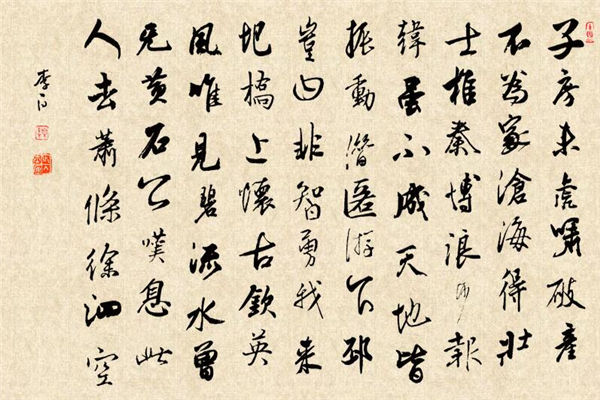 子房未虎嘯破產
不為家滄海得壯
士椎秦博浪沙報
韓虽不成天地皆
振動潛匿游下邳
豈曰非智勇我來
圯橋上懷古欽英
風唯見碧流水曾
无黃石公嘆息此
人去蕭條徐泗空
李白